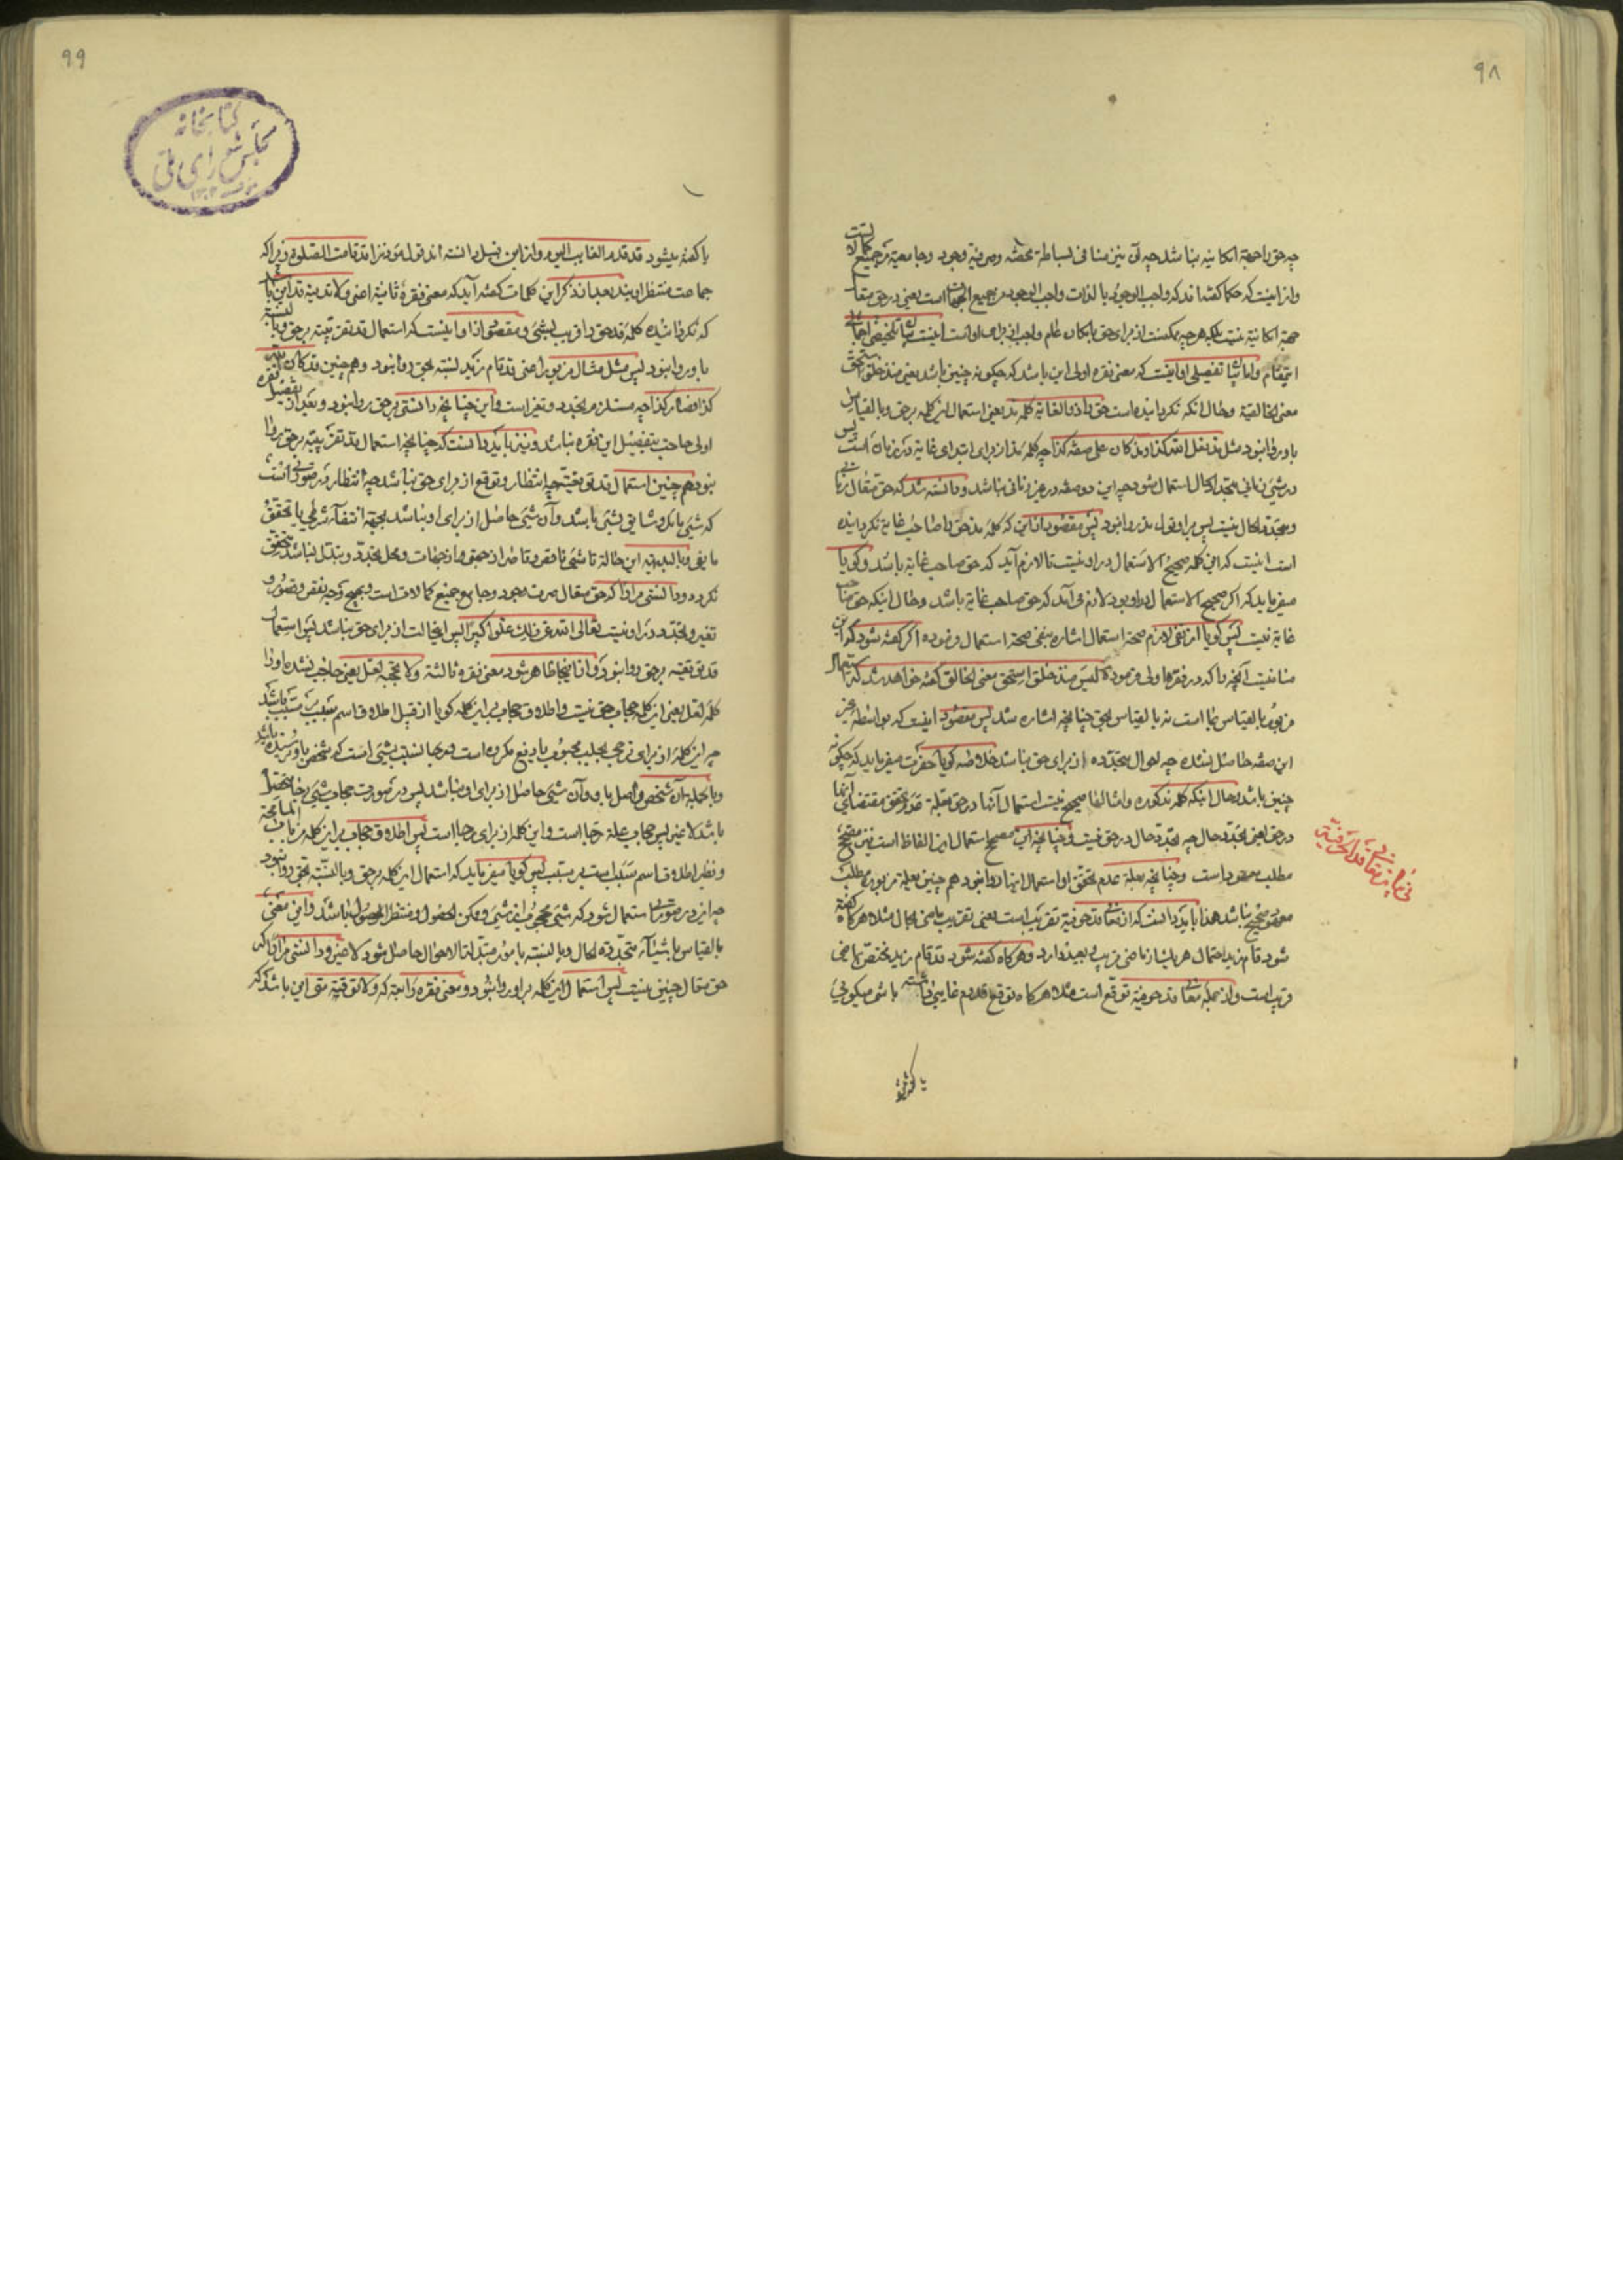 ۹۸
چه حق را جهة امکانیه نباشد چه آن نیز منافی بساطة محضه و صرفیة وجود و جامعیة جمیع کمالاتست
و از اینست که حکما گفته‌اند که واجب الوجود بالذات واجب الوجود من جمیع الجهات است یعنی در حق متعال
جهة امکانیة نیست بلکه هرچه ممکنست از برای حق بامکان عام واجب از برای او است اینست
و اما تفصیلی او اینست که معنی فقره اولی این باشد که چگونه چنین باشد یعنی منذ خلق استحق
معنی الخالقیة و حال آنکه نکردانیده است حق را ذو الغایة کلمه مذ یعنی استعمال این کلمه بر حق و بالقیاس
باو روا نبود مثل مذ فعل الله کذا و مذ کان علی صفة کذا چه کلمه مذ از برای ابتدای غایة در زمان است پس
در شیء زمانی متجدد الحال استعمال شود چه این دو صفه در غیر زمانی نباشد و دانسته شد که حق متعال زمانی
و متجدد الحال نیست پس بر او قول مذ روا نبود پس مقصود از این که کلمه مذ حق را صاحب غایة نکردانیده
است اینست که این کلمه صحیح الاستعمال در او نیست تا لازم آید که حق صاحب غایة باشد و گویا
میفرماید که اگر صحیح الاستعمال در او بود لازم می‌آمد که حق صاحب غایة باشد و حال اینکه حق صاحب
غایة نیست پس گویا از نفی لازم صحة استعمال اشاره بنفی صحة استعمال فرموده اگر گفته شود که این
منافیست آنچه را که در فقره اولی فرمود که لیس منذ خلق استحق معنی الخالق گفته خواهد شد که استعمال
مزبور بالقیاس بما است نه بالقیاس بحق چنانچه اشاره شد پس مقصود اینست که بواسطه غیر
این صفه حاصل نشده چه احوال متجدده از برای حق نباشد خلاصه گویا حضرت میفرماید که چگونه
چنین باشد و حال اینکه کلمه مذکوره و امثالها صحیح نیست استعمال آنها در حق بعلة عدم تحقق مقتضای آنها
در حق یعنی تجدد حال چه تجدد حال در حق نیست و چنانچه این مصحح استعمال این الفاظ است نیز مصحح
مطلب معهود است و چنانچه بعلة عدم تحقق او استعمال اینها روا نبود هم چنین بعلة مزبوره مطلب
معهود صحیح نباشد هذا باید دانست که از معانی قد حرفیة تقریب است یعنی تقریب ماضی بحال مثلا هرگاه گفته
شود قام زید احتمال هر یک از ماضی قریب و بعید دارد و هرگاه گفته شود قد قام زید مختص بماضی
قریب است و از جمله معانی قد حرفیة توقع است مثلا هرگاه توقع قدوم غایبی داشته باشی میگوئی
یا گفته شود
۹۹
کتابخانه
مجلس شورای ملی
یا گفته میشود قد قدم الغایب الیوم و از این قبیل دانسته‌اند قول مؤذن را قد قامت الصلوة زیرا که
جماعت منتظر اویند بعد از ذکر این کلمات گفته آید که معنی فقره ثانیه اعنی و لا تدنیه قد این باشد
که نکردانیده کلمه قد حق را قریب بشیئی و مقصود از او اینست که استعمال قد تقریبیه بر حق و بالنسبة
باو روا نبود پس مثل مثال مزبور اعنی قد قام زید نسبة بحق روا نبود و هم چنین قد کان الله
کذا و صار کذا چه مستلزم تجدد و تغیر است و این چنانچه دانستی بر حق روا نبود و بعد از تفصیل فقره
اولی حاجت بتفصیل این فقره نباشد و نیز باید دانست که چنانچه استعمال قد تقریبیه بر حق روا
نبود هم چنین استعمال قد توقعیه چه انتظار و توقع از برای حق نباشد چه انتظار در صورتی است
که شیئی بالذات شایق بشیئی باشد و آن شیئ حاصل از برای او نباشد بجهة انتفاء شرطی یا تحقق
مانعی و بالبدیهه این حالة تا شیئ ناقص و قاصر از جهتی از جهات و محل تجدد و تبدل نباشد متحقق
نکردد و دانستی مرارا که حق متعال صرف وجود و جامع جمیع کمالات است و بهیچ وجه نقص و قصور و
تغیر و تجدد در او نیست تعالی الله عن ذلک علوا کبیرا پس این حالت از برای حق نباشد پس استعمال
قد توقعیه بر حق روا نبود و از اینجا ظاهر شود معنی فقره ثالثه و لا تحجبه لعل یعنی حاجب نشده او را
کلمه لعل یعنی این کلمه حجاب حق نیست و اطلاق حجاب بر این کلمه گویا از قبیل اطلاق اسم مسبب بر سبب باشد
چه این کلمه از برای ترجی بجلب محبوب یا دفع مکروه است
و بالجمله آن شخص واصل باو و آن شیئ حاصل از برای او نباشد پس در صورت حجاب شیئ
باشد لا غیر پس حجاب علة رجا است و این کلمه از برای رجا است پس اطلاق حجاب بر این کلمه از باب
و نظیر اطلاق اسم سبب است بر مسبب پس گویا میفرماید که استعمال این کلمه بر حق و بالنسبة بحق روا نبود
چه این در صورتی استعمال شود که شیئ محجوب از شیئ و ممکن الحصول و منتظر الوصول باشد و این معنی
بالقیاس باشیاء متجدده الحال و بالنسبه بامور متبدلة الاحوال حاصل شود لا غیر و دانستی مرارا که
حق متعال چنین نیست پس استعمال این کلمه بر او روا نبود و معنی فقره رابعه که و لا توقته متی این باشد که